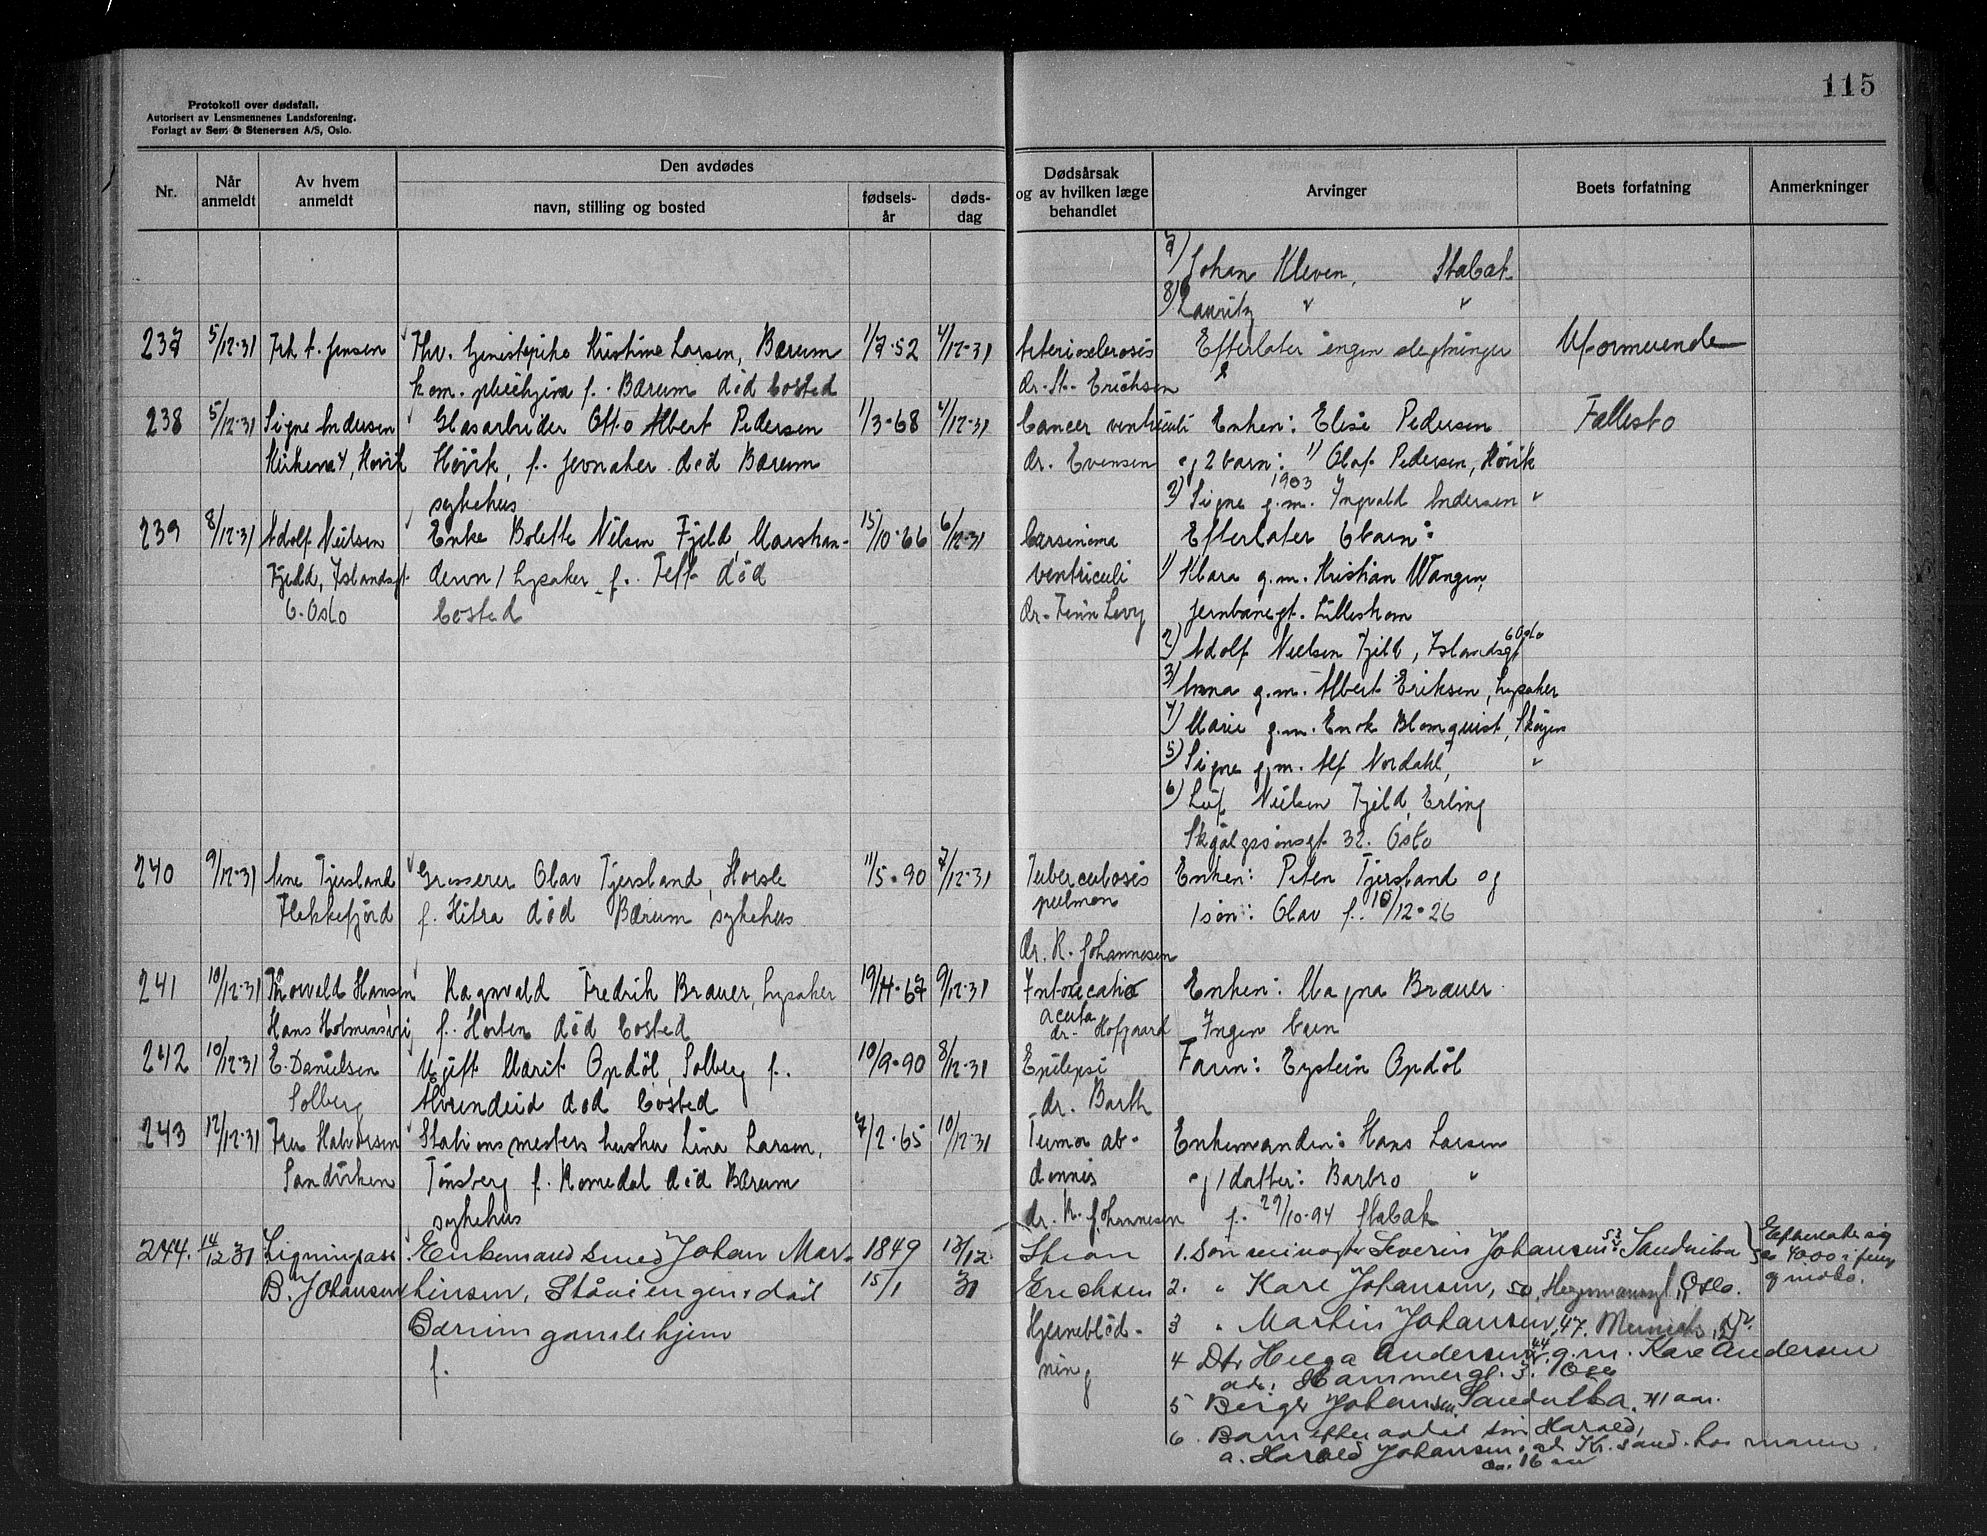 115
Protokoll over dødsfall.
Autorisert av Lensmennenes Landsforening.
Forlagt av Sem & Stenersen A/S, Oslo.
Nr.
Når anmeldt
Av hvem anmeldt
Den avdødes
navn, stilling og bosted
fødsels-år
døds-dag
Dødsårsak og av hvilken læge behandlet
Arvinger
Boets forfatning
Anmerkninger
7) Johan Kleven, Stabæk
8) Lauritz " "
237 5/12-31 Frk. Jensen Fhv. tjenestepike Kristine Larsen, Bærum 1/7-52 4/12-31 Arteriosclerosis Efterlater ingen slegtninger Uformuende
kom. pleiehjem f. Bærum død bosted dr. St. Erichsen
238 5/12-31 Signe Andersen Glasarbeider Otto Albert Pedersen 1/3-68 4/12-31 Cancer ventriculi Enken: Elise Pedersen Fællesbo
Kirkevei 4, Høvik Høvik, f. Jevnaker død Bærum dr. Evensen og 2 barn: 1) Olaf Pedersen, Høvik
sykehus 2) Signe 1903 g.m. Ingvald Andersen "
239 8/12-31 Adolf Nielsen Enke Bolette Nilsen Fjeld, Marshan- 15/10-66 6/12-31 Carsinoma Efterlater 6 barn:
Fjeld, Islandsgt. Lysaker f. Teft død ventriculi 1) Klara g.m. Kristian Wangen,
6. Oslo bosted dr. Finn Levy Jernbanegt. Lillestrøm
2) Adolf Nielsen Fjeld, Islandsgt 6 Oslo
3) Anna g.m. Albert Eriksen, Lysaker
4) Marie g.m. Enok Blomquist, Skøyen
5) Signe g.m. Alf Nordahl, "
6) Leif Nielsen Fjeld, Erling
Skjalgssønsgt 32. Oslo
240 9/12-31 Arne Tjersland Grosserer Olav Tjersland, Horsle 11/5-90 7/12-31 Tuberculosis Enken: Peten Tjersland og
Flekkefjord f. Hitra død Bærum sykehus pulmon 1 søn: Olav f. 10/12-26
dr. R. Johannesen
241 10/12-31 Thorvald Hansen Ragnvald Fredrik Brauer, Lysaker 19/4-67 9/12-31 Intoxicatio Enken: Magna Brauer
Hans Holmensvei f. Horten død bosted acuta dr. Hofgaard Ingen barn
242 10/12-31 E. Danielsen Ugift Marit Opdøl, Solberg f. 10/9-90 8/12-31 Epilepsi Faren: Eystein Opdøl
Solberg Ålvundeid død bosted dr. Barth
243 12/12-31 Fru Halvorsen Stationsmesters hustru Lina Larsen, 7/2-65 10/12-31 Tumor ab- Enkemanden: Hans Larsen
Sandviken Tønsberg f. Romedal død Bærum domnis og 1 datter: Barbro "
sykehus dr. R. Johannesen f. 29/10-94 Stabæk
244. 14/12 31 Ligningsass Enkemand smed Johan Mar- 1849 13/12 Stian 1. Søn Severin Johansen 53 Sandvika Efterlater sig
B. Johansen tinsen, død 15/1 31 Erichsen 2. " Kare Johansen, 50, Hegermannsgt. Oslo. 4000 i penger
Bærum gamlehjem Hjerneblød- 3 " Martin Johansen, 47, og indbo.
f. ning 4 Dtr Helga Andersen 44 g.m. Kare Andersen
Hammergt. 3. Oslo
5 Birger Johansen Sandvika. 41 aar.
6. Barn efter avdød søn Harald,
a. Harald Johansen, Kr. sand. hos moren.
ca. 16 aar